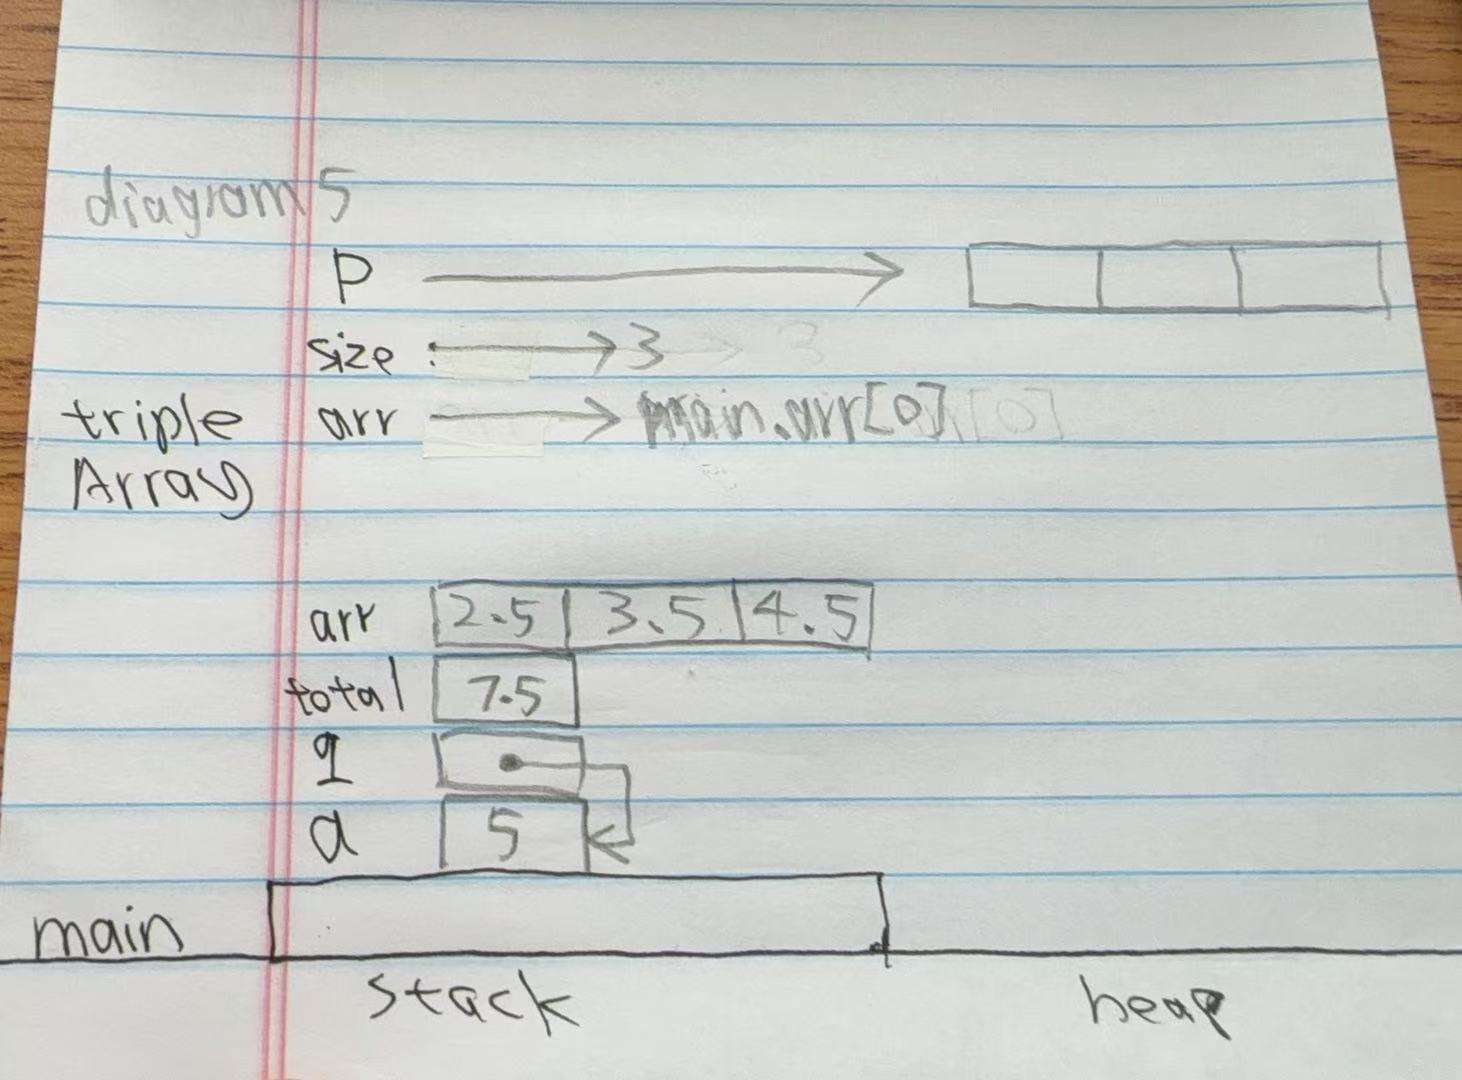 diagram 5
P
size : 3
triple arr main.arr[0]
Array
arr 2.5 3.5 4.5
total 7.5
q
a 5
main
stack heap